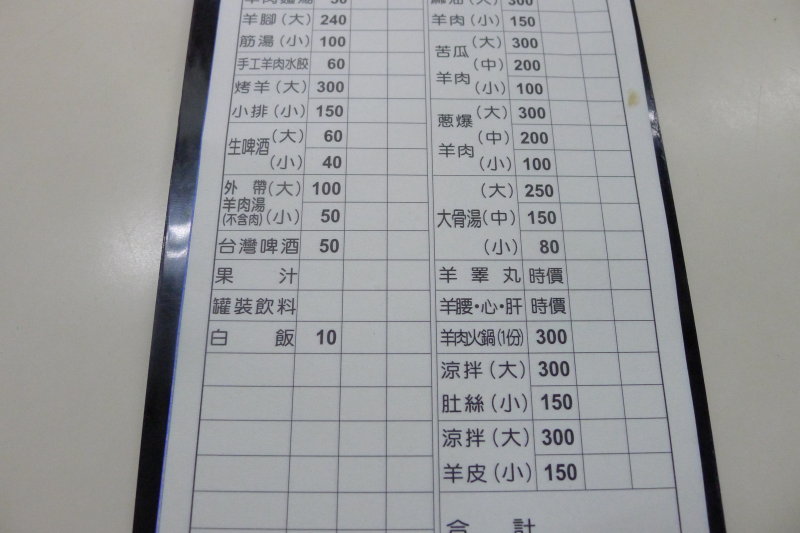 羊肉麵湯 50
羊腳(大) 240
筋湯(小) 100
手工羊肉水餃 60
烤羊(大) 300
小排(小) 150
生啤酒(大) 60
(小) 40
外帶(大) 100
羊肉湯
(不含肉)(小) 50
台灣啤酒 50
果汁
罐裝飲料
白飯 10
麻油(大) 300
羊肉(小) 150
苦瓜(大) 300
(中) 200
羊肉(小) 100
蔥爆(大) 300
(中) 200
羊肉(小) 100
(大) 250
大骨湯(中) 150
(小) 80
羊睪丸 時價
羊腰·心·肝 時價
羊肉火鍋(1份) 300
涼拌(大) 300
肚絲(小) 150
涼拌(大) 300
羊皮(小) 150
合計